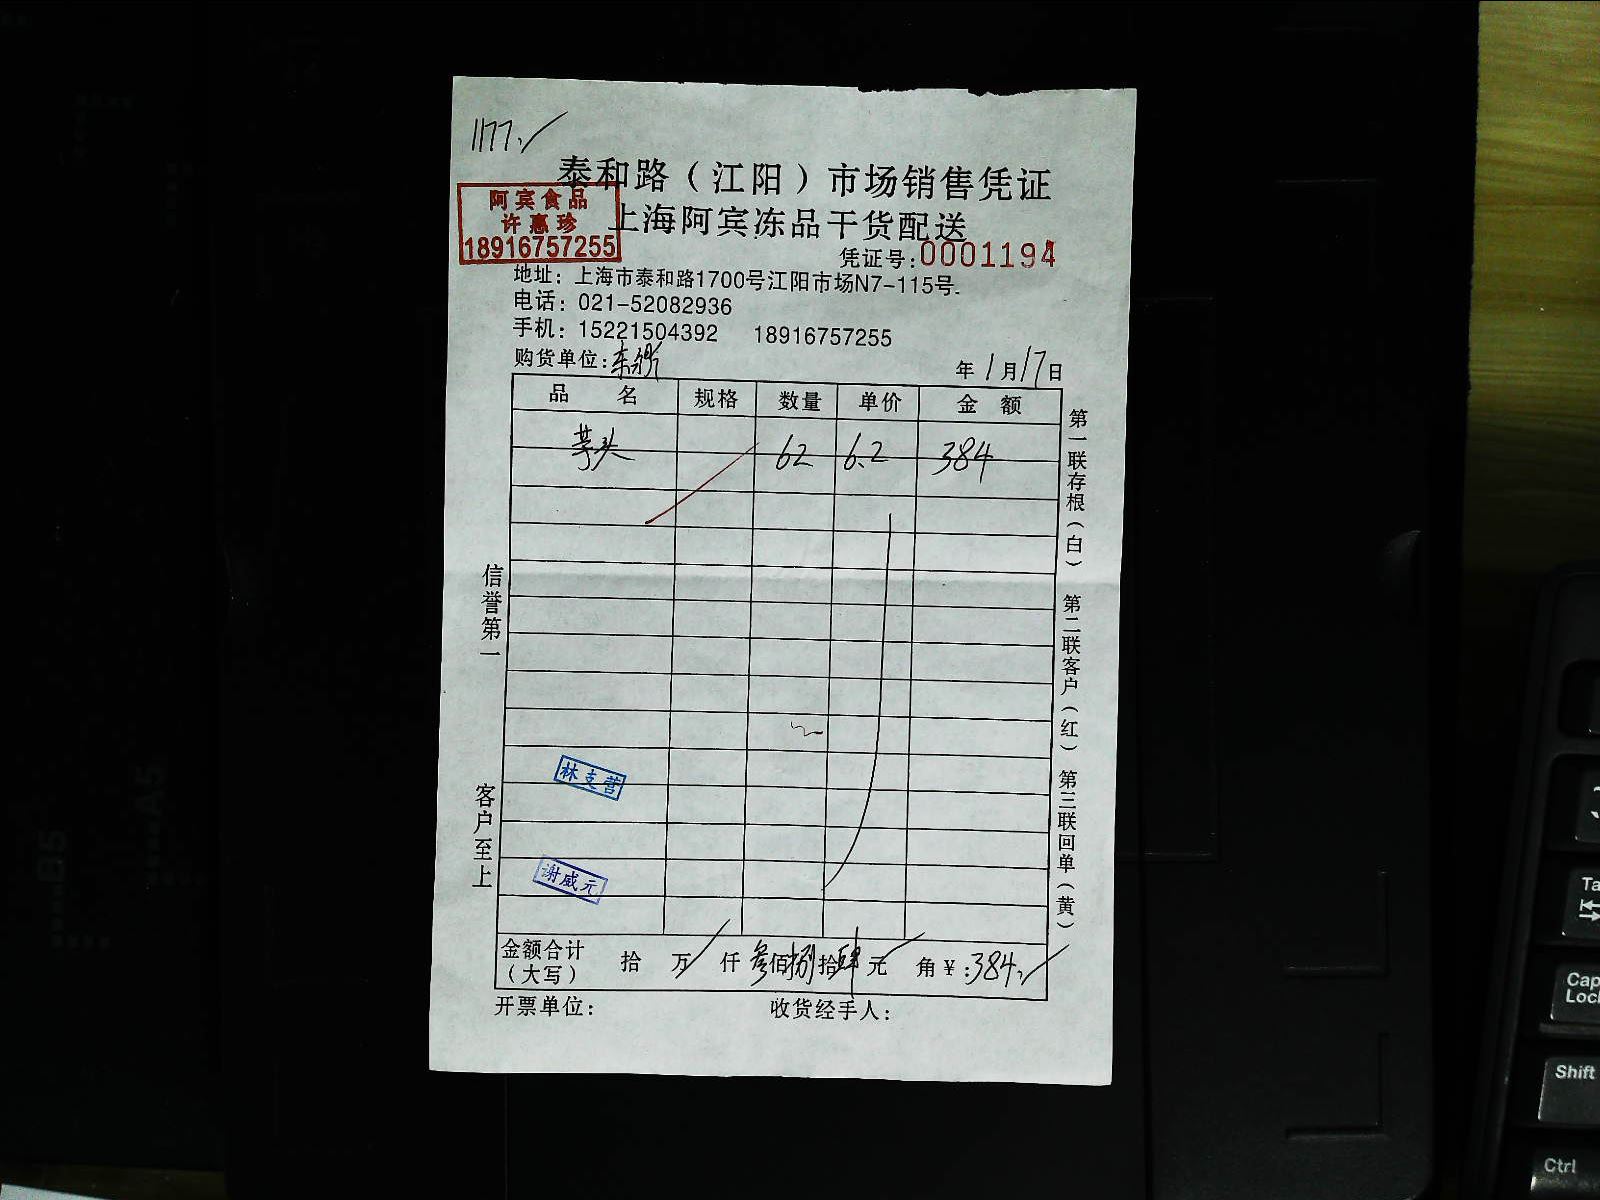 1177.
泰和路（江阳）市场销售凭证
阿宾食品
许惠珍
18916757255
上海阿宾冻品干货配送
凭证号：0001194
地址：上海市泰和路1700号江阳市场N7-115号.
电话：021-52082936
手机：15221504392 18916757255
购货单位： 年1月17日
品名 规格 数量 单价 金额
芋头 62 6.2 384
信誉第一
客户至上
第一联存根（白） 第二联客户（红） 第三联回单（黄）
林支营
谢威元
金额合计（大写） 拾 万 仟 叁佰捌拾肆元 角 ¥：384.
开票单位： 收货经手人：
B5
A5
Caps
Lock
Shift
Ctrl